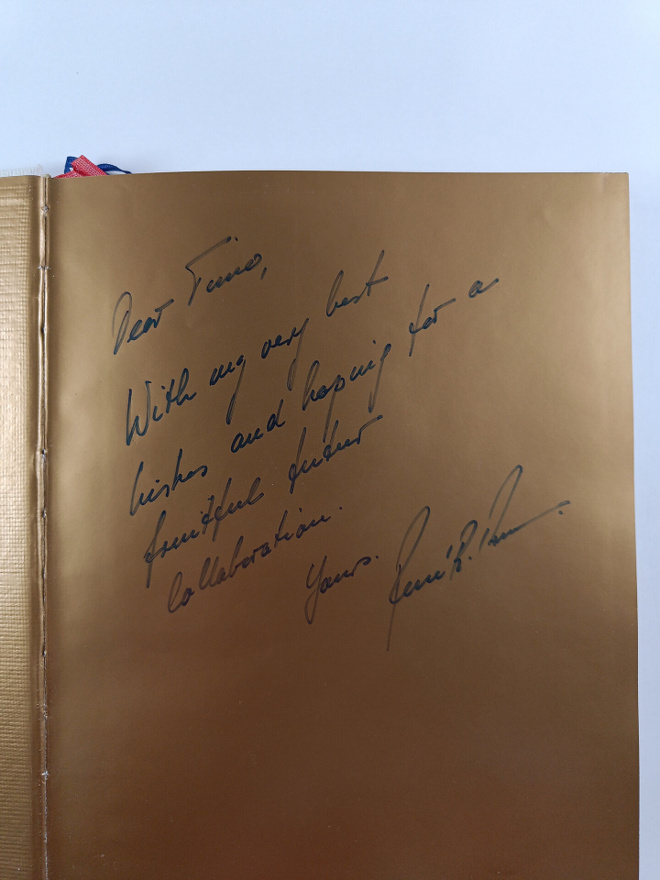 Dear Timo,
With my very best
wishes and hoping for a
fruitful future
collaboration.
Yours.
René R.